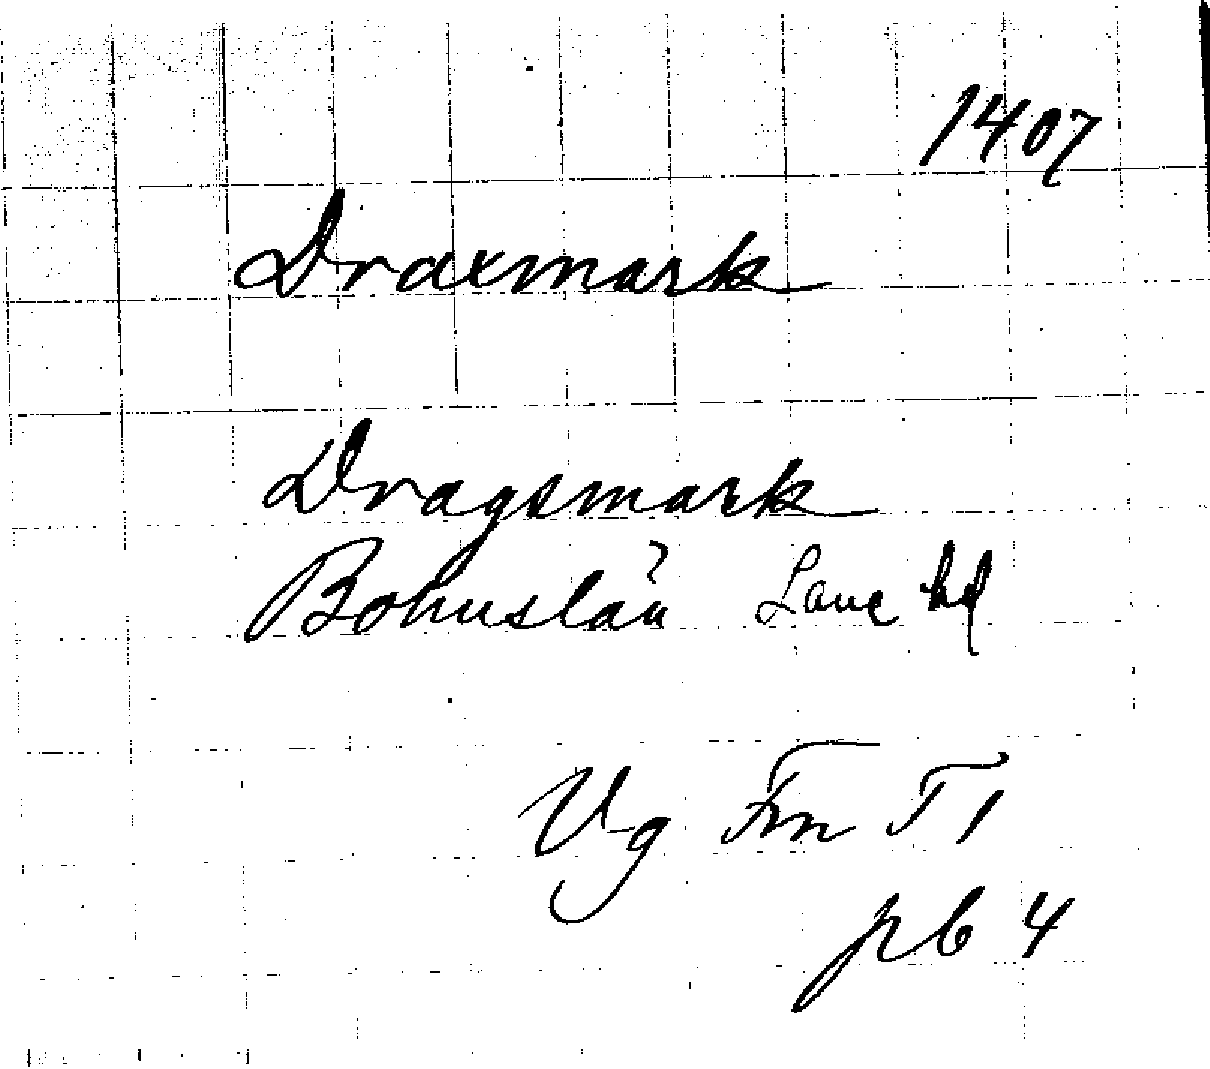 1407
Draxmark
Dragsmark
Bohuslän Lane hd
Vg Fm T1
pb 4